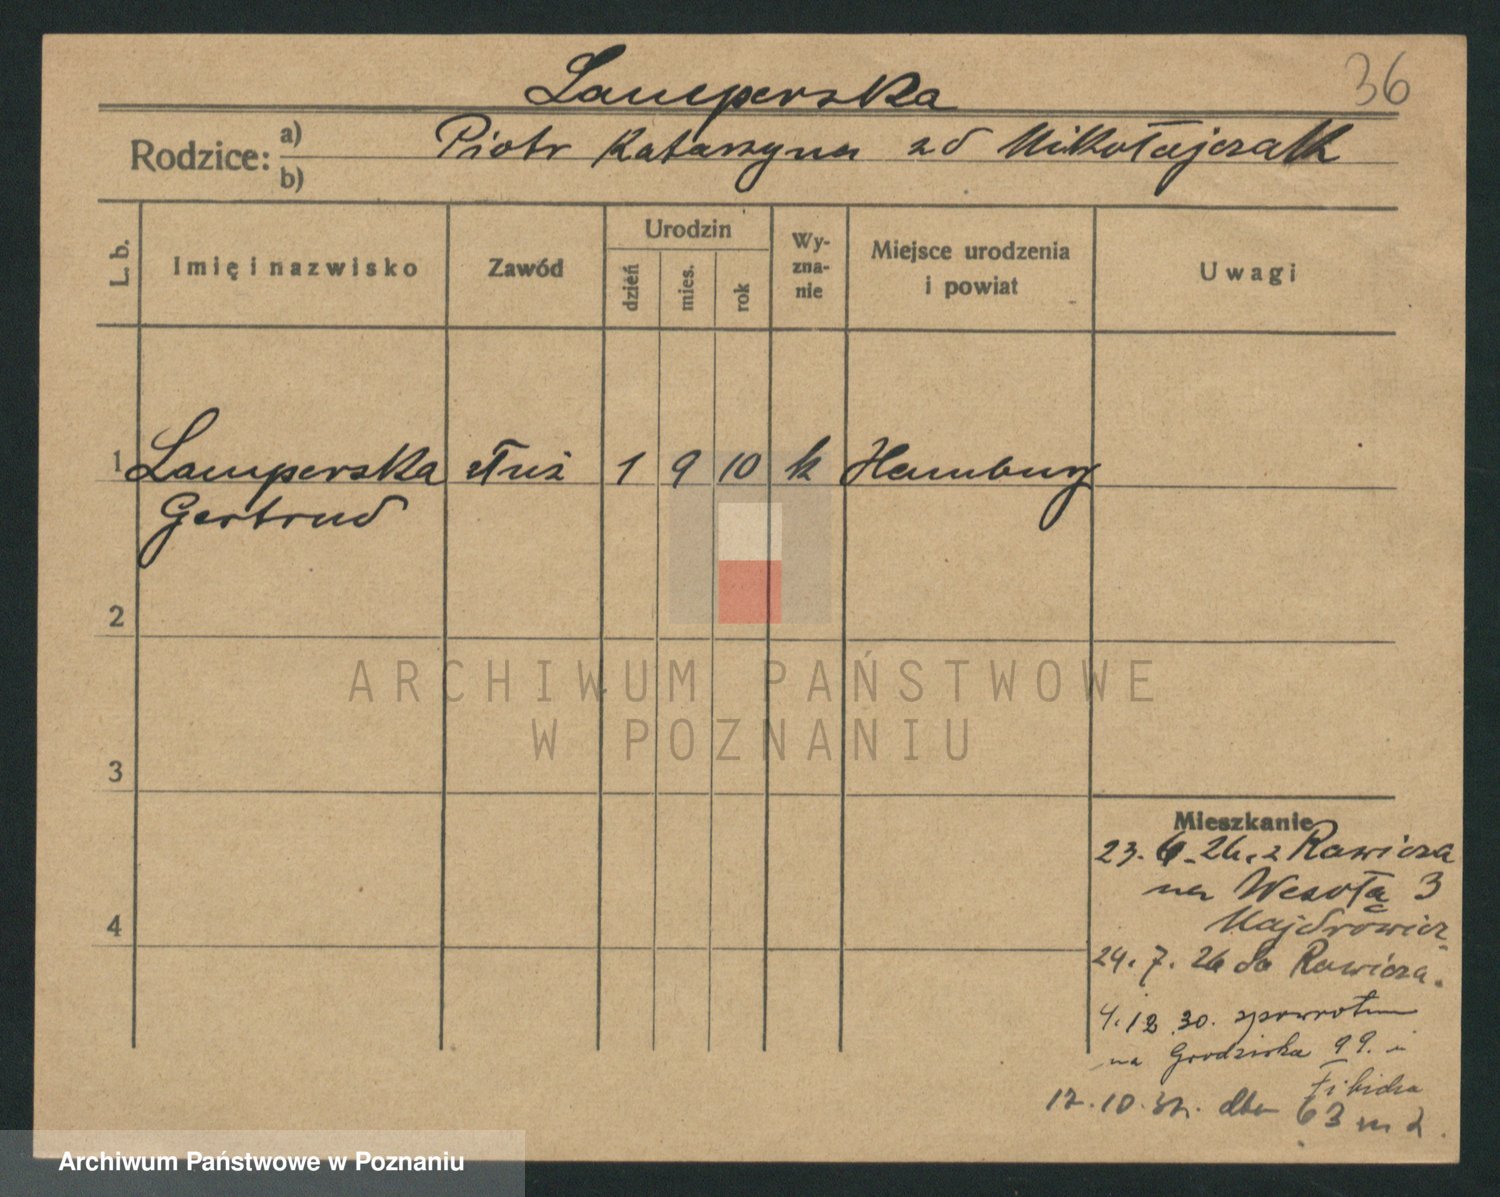 36
Lamperska
Rodzice: a) b) Piotr Katarzyna zd Mikołajczak
L. b. Imię i nazwisko Zawód Urodzin dzień mies. rok Wy-zna-nie Miejsce urodzenia i powiat Uwagi
1 Lamperska służ 1 9 10 k Hamburg
Gertrud
2
ARCHIWUM PAŃSTWOWE
W POZNANIU
3
Mieszkanie
23. 6. 26. z Rawicza
na Wesołą 3
Majdrowicz
4
24. 7. 26 do Rawicza.
4. 12 30. zpowrotem
na Grodziska 99. u
12.10.32. dto 63 m 2.
Archiwum Państwowe w Poznaniu